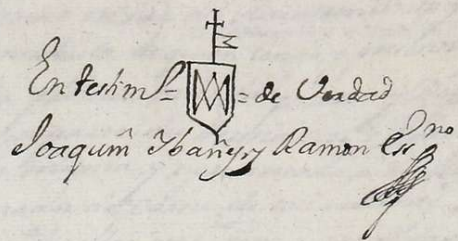 En testim.º = = de Verdad
Joaquin Ybañez y Ramon Ess.no